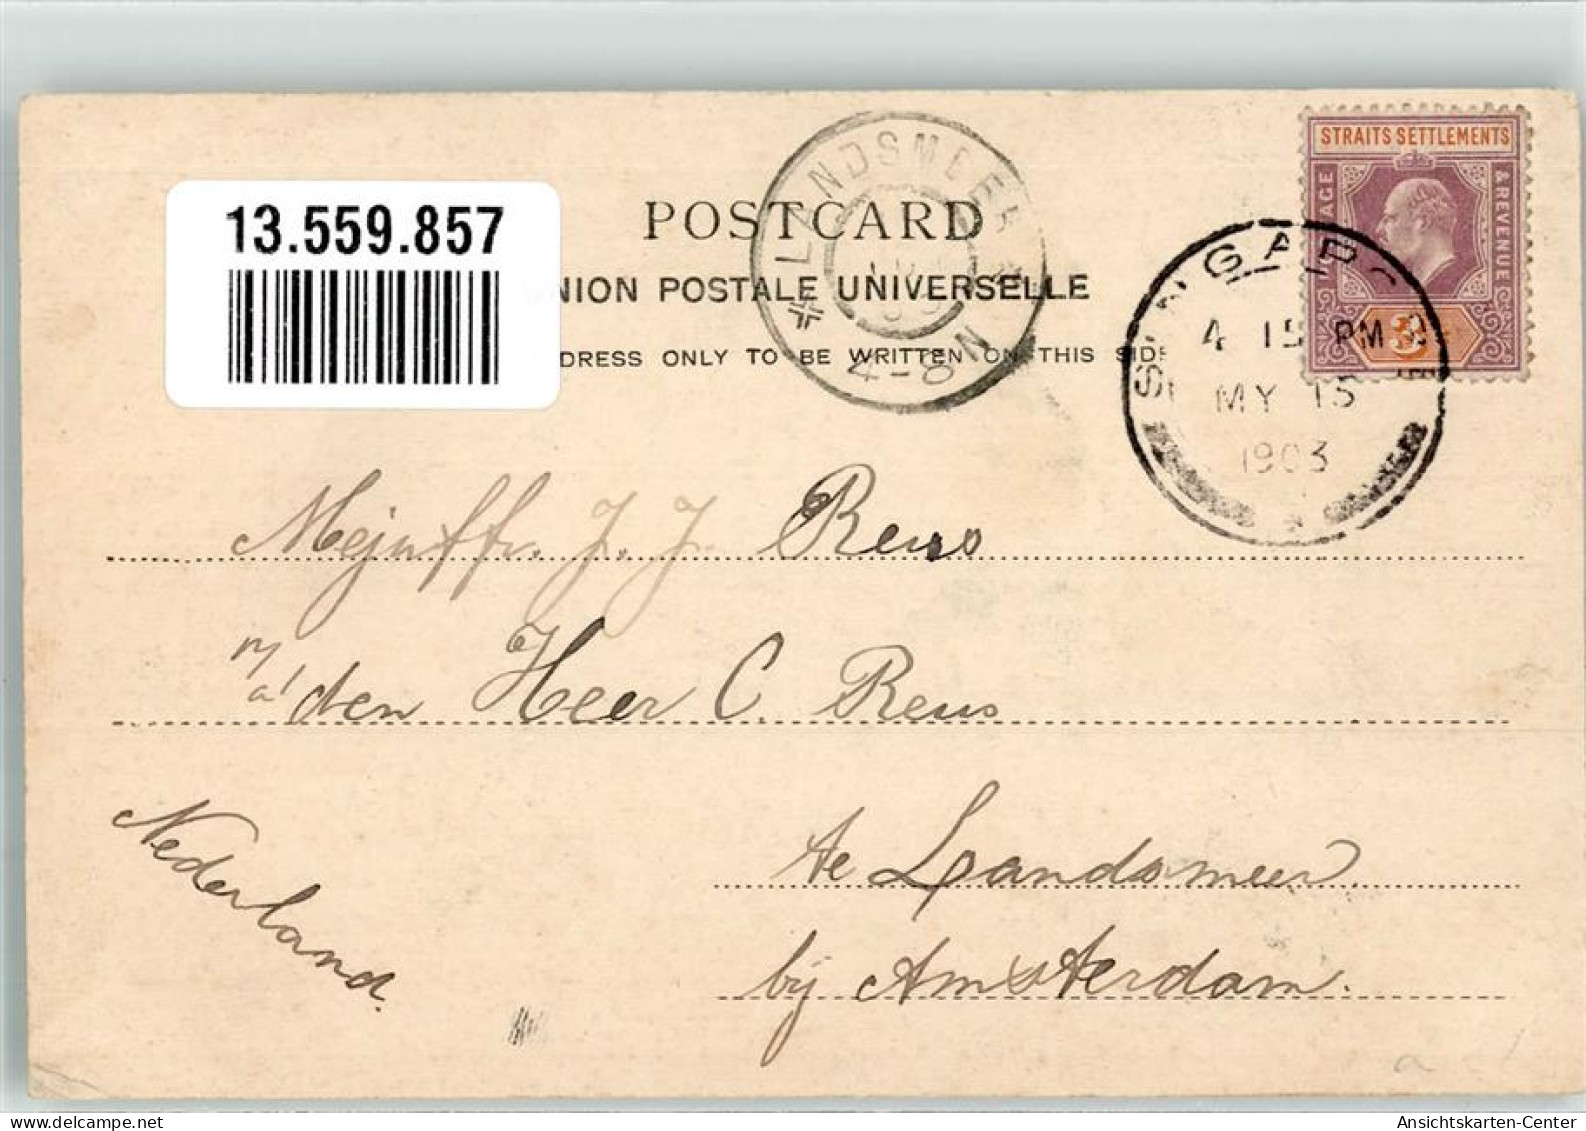 13.559.857
POSTCARD
NION POSTALE UNIVERSELLE
DRESS ONLY TO BE WRITTEN ON THIS SIDE
LANDSMEER
4-8 N
STRAITS SETTLEMENTS
& REVENUE
3
SINGAPORE
4 15 PM
MY 15
1903
Mejuffr. J. J. Reus
p/a den Heer C. Reus
te Landsmeer
bij Amsterdam.
Nederland.
Ansichtskarten-Center